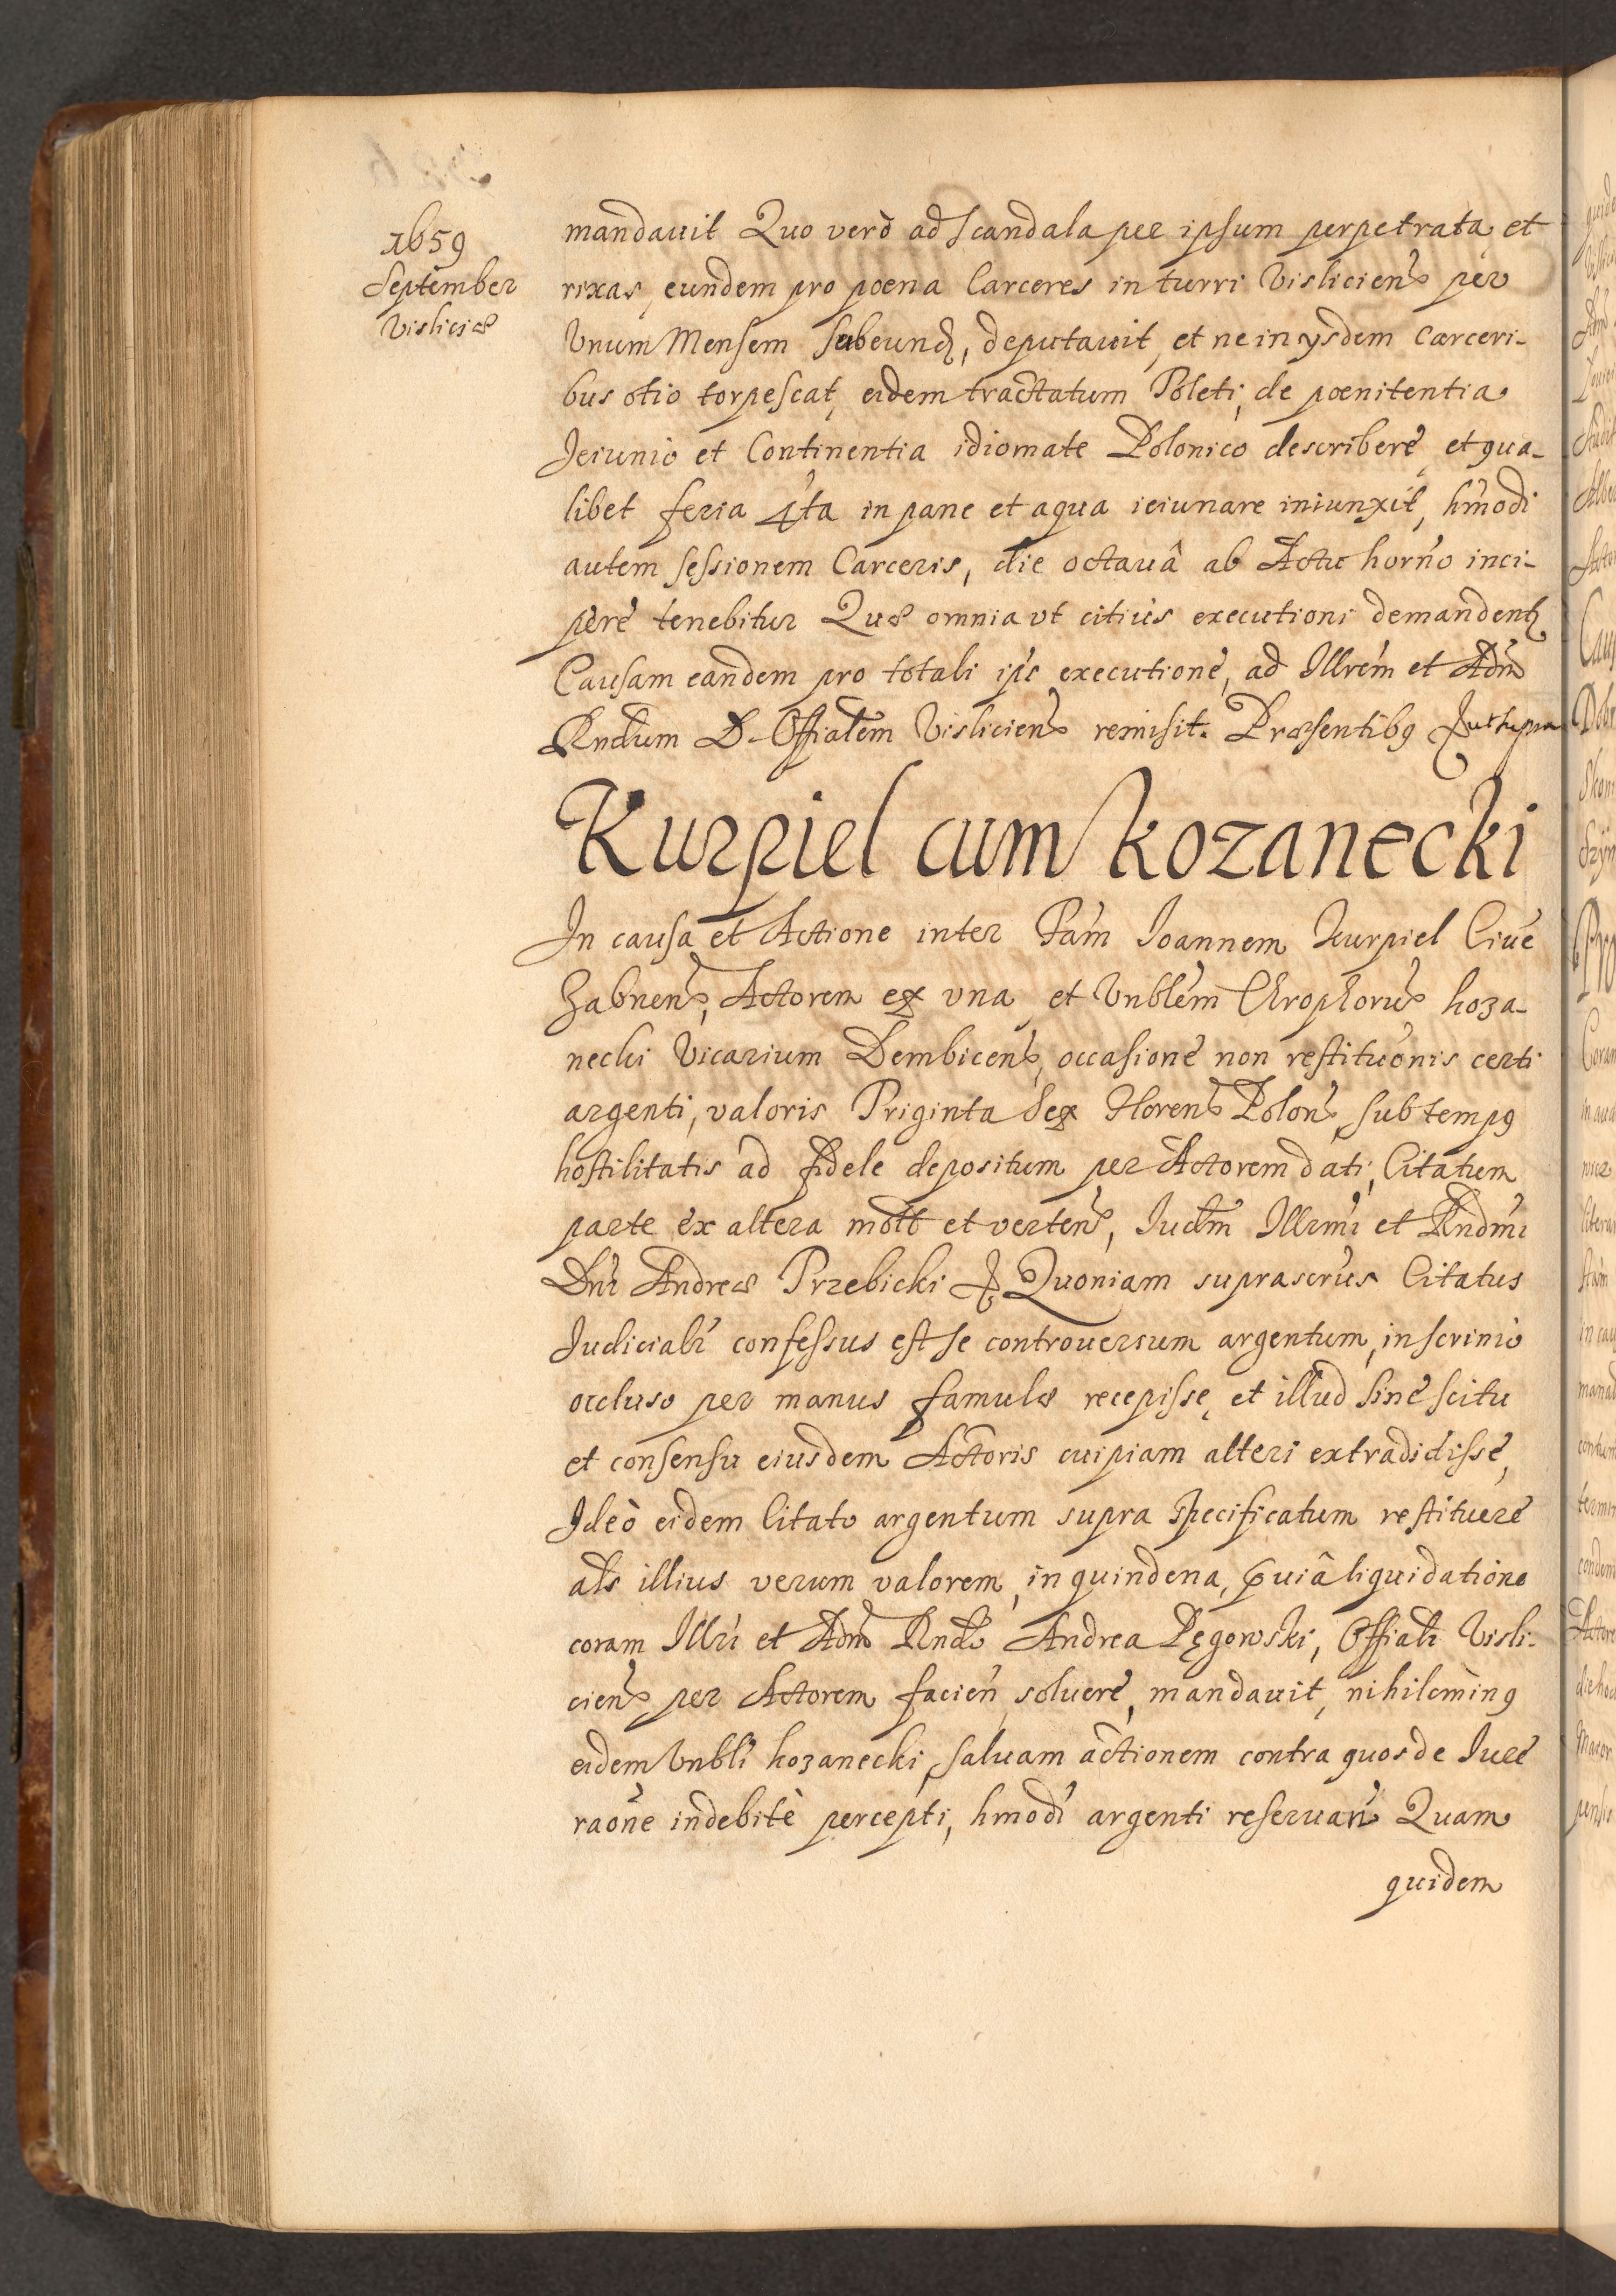 1659
September
Visliciæ
mandauit Quo verò ad scandala per ipsum perpetrata et
rixas, eundem pro poena Carceres in turri Vislicien̄ per
Vnum Mensem subeund, deputauit, et ne in ysdem carceri-
bus otio torpescat, eidem tractatum Poleti, de poenitentia
Jeiunio et Continentia idiomate Polonico describere, et qua-
libet feria 4ta in pane et aqua ieiunare iniunxit, hm̃odi
autem sessionem Carceris, die octauâ ab Actu horño inci-
pere tenebitur Quæ omnia vt citiùs executioni demandent
Causam eandem pro totali ips executione, ad Illrem et Adm̃
Rndum D. Offialem Vislicien̄ remisit. Præsentibg ut supra
Kurpiel cum Kozanecki
In causa et Actione inter Fam̃ Joannem Kurpiel Ciuē
Zabnen̄, Actorem ex vna, et Vnblem Chrophorū Koza-
necki Vicarium Dembicen̄, occasione non restituõnis certi
argenti, valoris Triginta sex Floren̄ Polon̄, sub tempg
hostilitatis ad fidele depositum per Actorem dati, Citatum
parte ex altera mott et verten̄, Iudm̃ Illrmi et Rndmi
Dni Andreæ Trzebicki Quoniam suprascrus Citatus
Judiciali confessus est se controuersum argentum, in scrinio
occluso per manus famulæ recepisse, et illud sine scitu
et consensu eiusdem Actoris cuipiam alteri extradidisse,
Ideò eidem Citato argentum supra specificatum restituere
als illius verum valorem, in quindena, præuiâ liquidatione
coram Illri et Adm̃ Rndo Andrea Pęgowski, Offiali Visli-
cien̄ per Actorem facien̄ soluere, mandauit, nihilomìng
eidem Vnbli Kozanecki, saluam actionem contra quos de Iure
raõne indebitè percepti, hmodi argenti reseruan̄ Quam
quidem